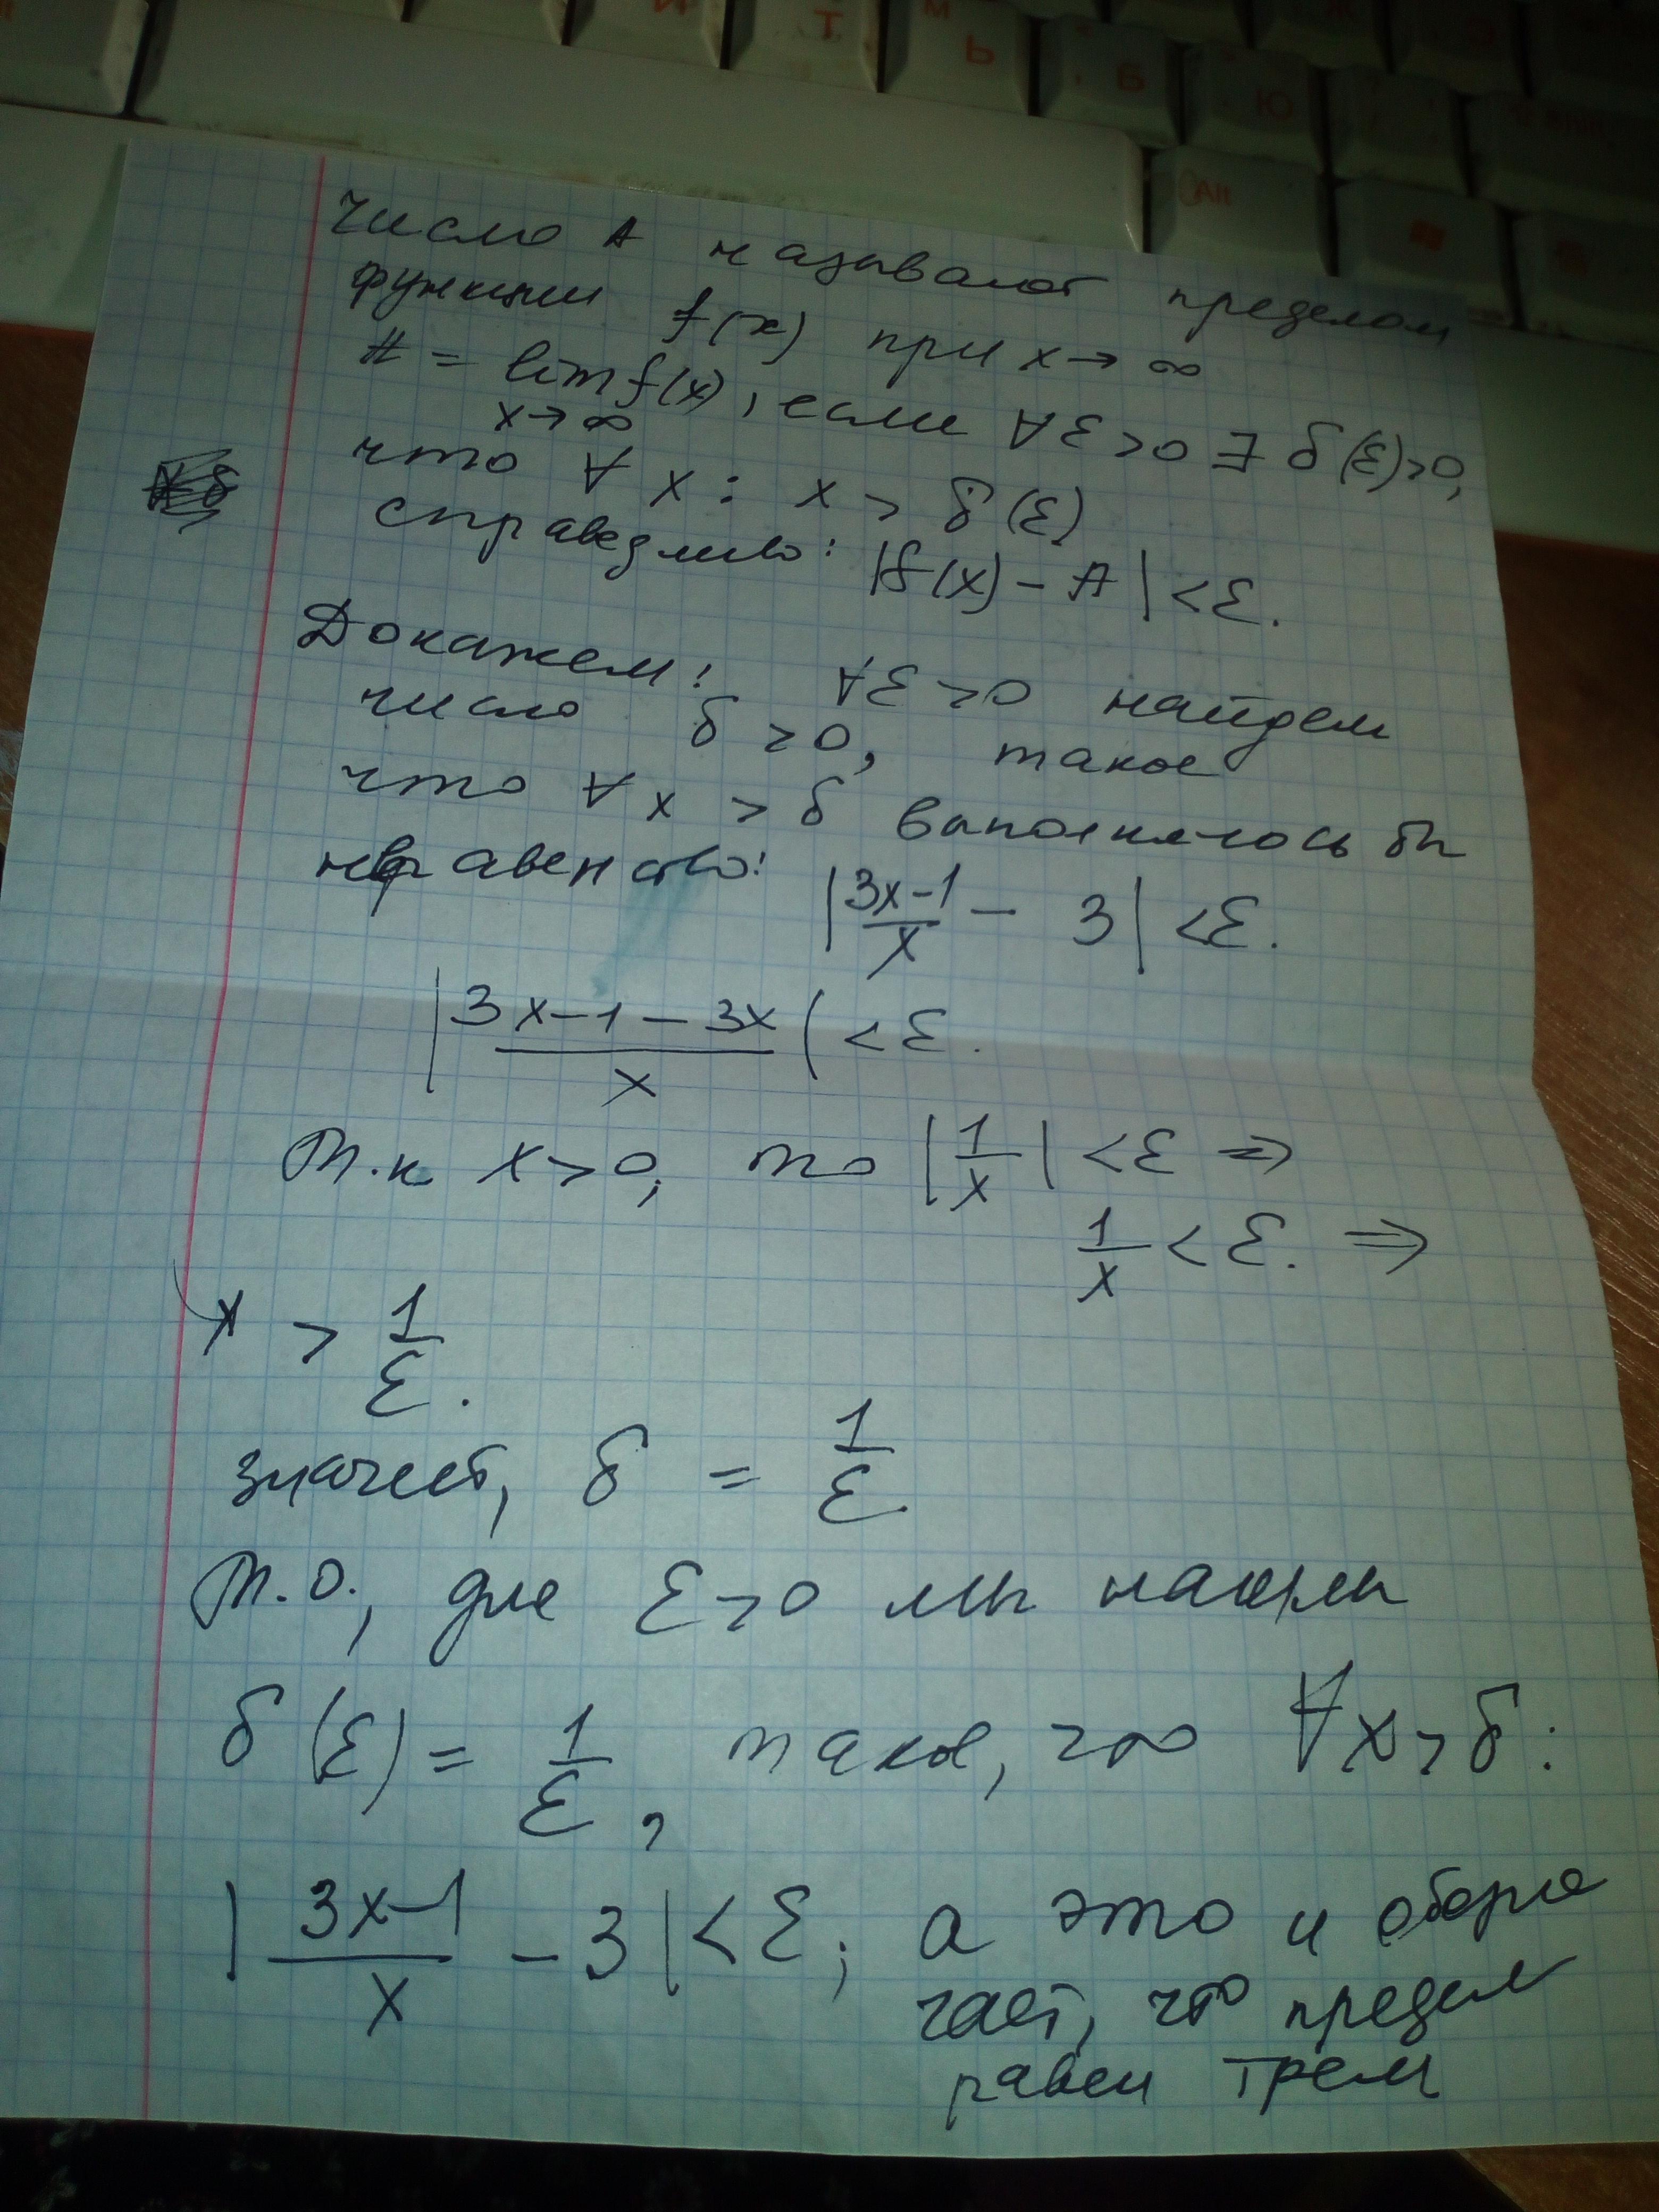 И Т М Ь Б Ю
САН
число А называют пределом
функции f(x) при x → ∞
A = lim f(x), если ∀ ε > 0 ∃ δ(ε) > 0,
x → ∞
что ∀ x : x > δ(ε)
справедливо: |f(x) - A| < ε.
Докажем: ∀ ε > 0 найдем
число δ > 0, такое
что ∀ x > δ выполнялось бы
неравенство: |(3x-1)/x - 3| < ε.
|(3x-1-3x)/x| < ε.
Т.к x > 0, то |1/x| < ε ⇒
1/x < ε. ⇒
x > 1/ε.
значит, δ = 1/ε.
Т.О., для ε > 0 мы нашли
δ(ε) = 1/ε, такое, что ∀x > δ:
|(3x-1)/x - 3| < ε; а это и обозна
чает, что предел
равен трем